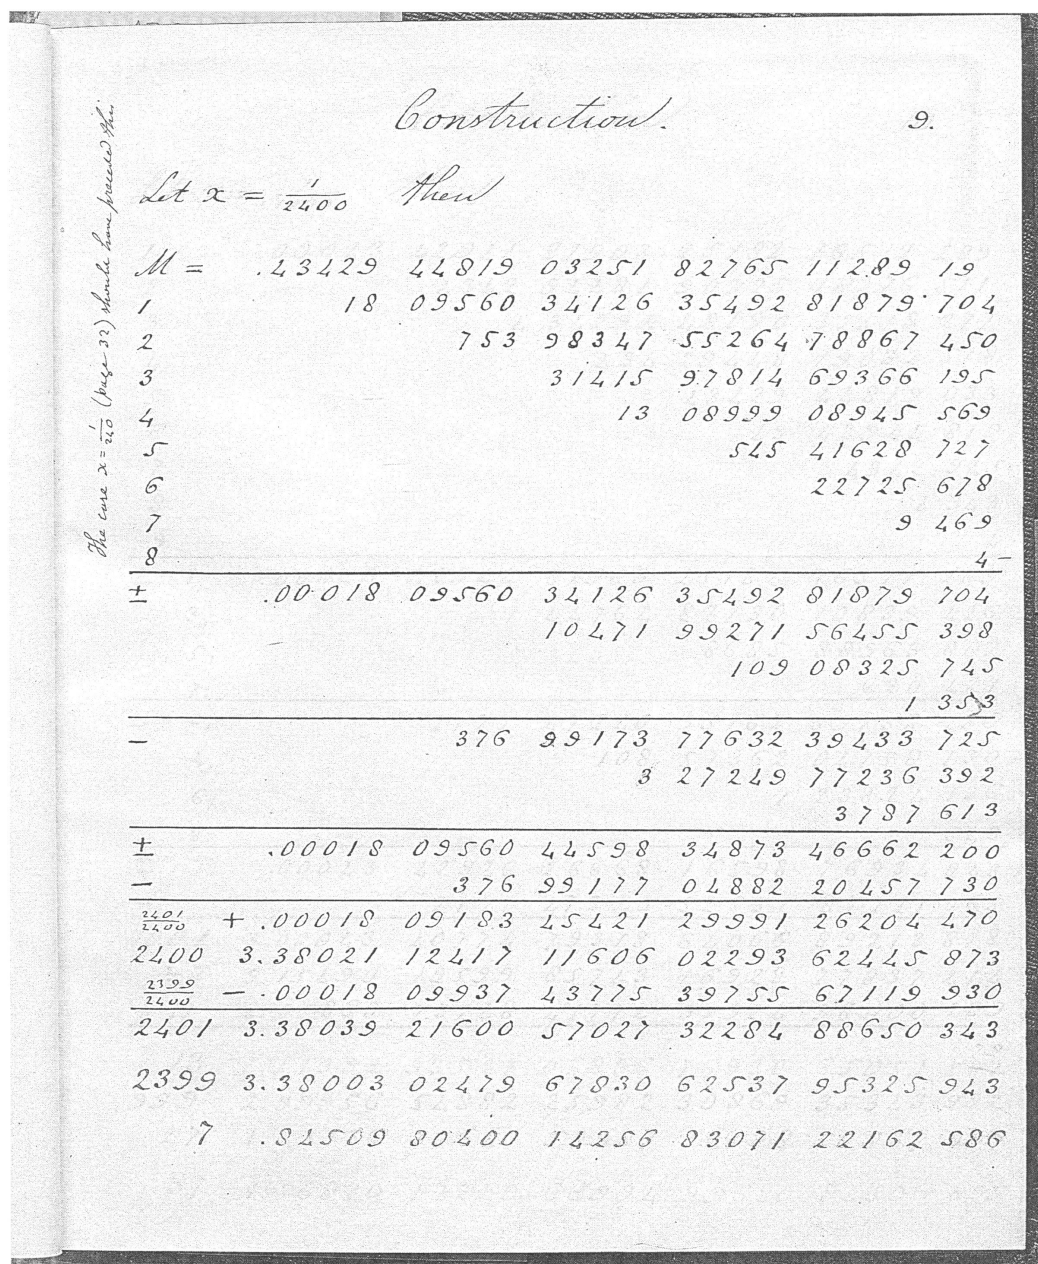 Construction. 9.
Let x = 1/2400 then
M = .43429 44819 03251 82765 11289 19
1 18 09560 34126 35492 81879 704
2 753 98347 55264 78867 450
3 31415 97814 69366 195
4 13 08999 08945 569
5 545 41628 727
6 22725 678
7 9 469
8 4-
± .00018 09560 34126 35492 81879 704
10471 99271 56455 398
109 08325 745
1 353
- 376 99173 77632 39433 725
3 27249 77236 392
3787 613
± .00018 09560 44598 34873 46662 200
- 376 99177 04882 20457 730
2401/2400 + .00018 09183 45421 29991 26204 470
2400 3.38021 12417 11606 02293 62445 873
2399/2400 - .00018 09937 43775 39755 67119 930
2401 3.38039 21600 57027 32284 88650 343
2399 3.38003 02479 67830 62537 95325 943
7 .84509 80400 14256 83071 22162 586
The case x = 1/240 (page 32) should have preceded this